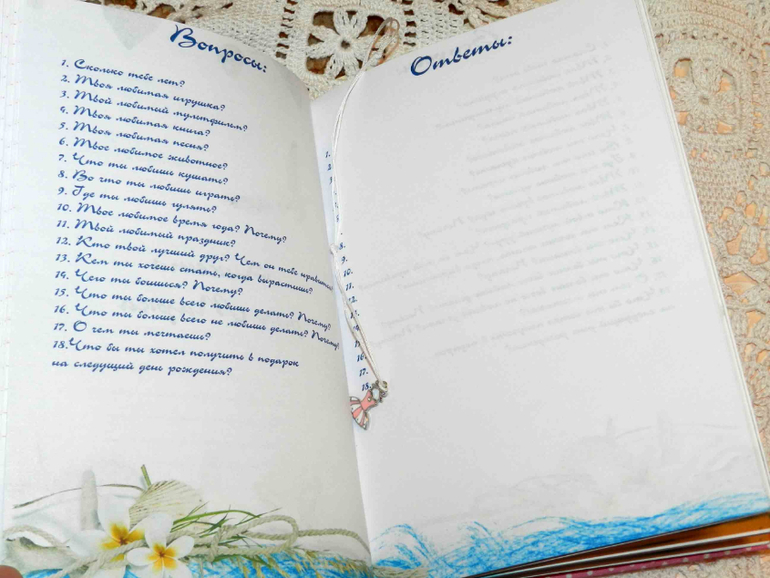 Вопросы:
1. Сколько тебе лет?
2. Твоя любимая игрушка?
3. Твой любимый мультфильм?
4. Твоя любимая книга?
5. Твоя любимая песня?
6. Твое любимое животное?
7. Что ты любишь кушать?
8. Во что ты любишь играть?
9. Где ты любишь гулять?
10. Твое любимое время года? Почему?
11. Твой любимый праздник?
12. Кто твой лучший друг? Чем он тебе нравится?
13. Кем ты хочешь стать, когда вырастишь?
14. Чего ты боишься? Почему?
15. Что ты больше всего любишь делать? Почему?
16. Что ты больше всего не любишь делать? Почему?
17. О чем ты мечтаешь?
18. Что бы ты хотел получить в подарок
на следущий день рождения?
Ответы:
1.
2.
8.
9.
10.
11.
12.
16.
17.
18.